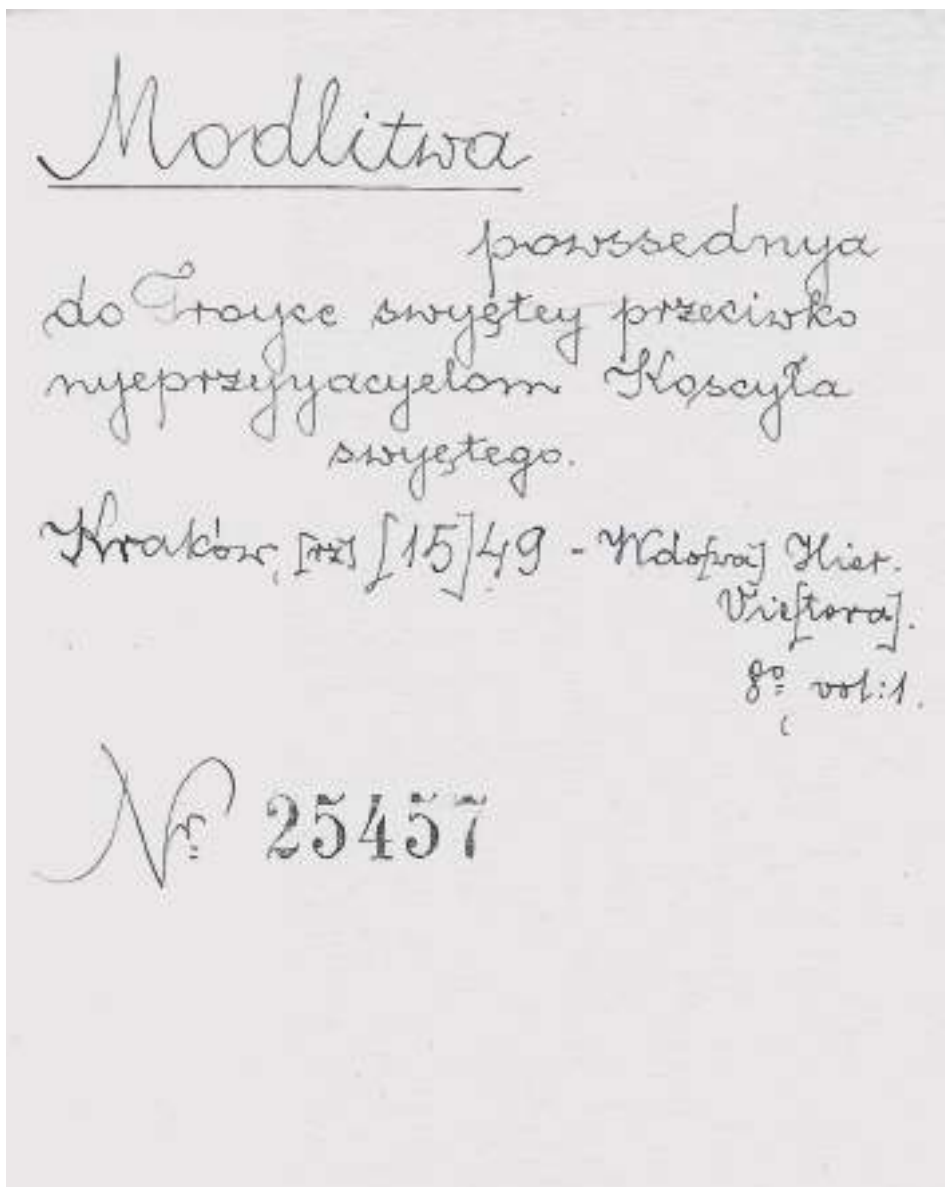 Modlitwa
powssednya
do Troyce swyętey przeciwko
nyeprzyyacyelom Koscyła
swyętego.
Kraków, [15]49 - Wdo[wa] Hier.
Vie[tora].
8º vol: 1.
Nr 25457